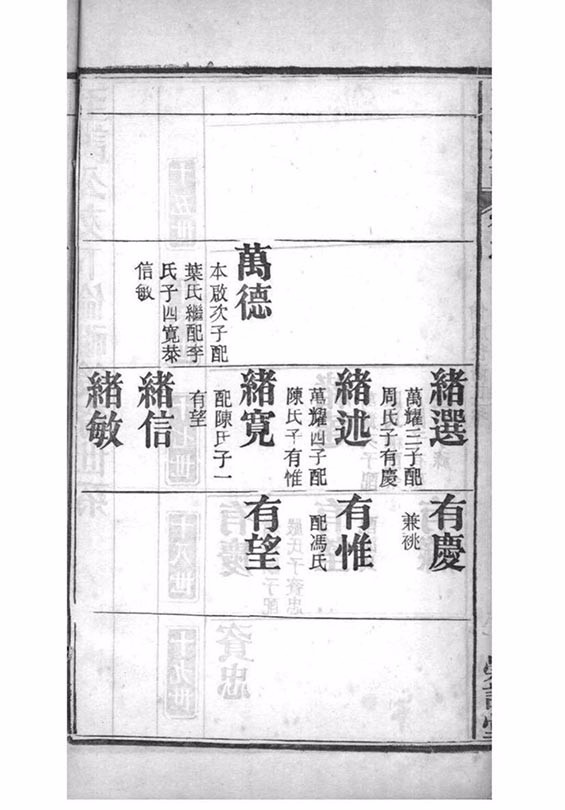 萬德
本啟次子配
葉氏繼配李
氏子四寬恭
信敏
緒選
萬耀三子配
周氏子有慶
緒述
萬耀四子配
陳氏子有惟
緒寬
配陳氏子一
有望
緒信
緒敏
有慶
兼祧
有惟
配馮氏
有望